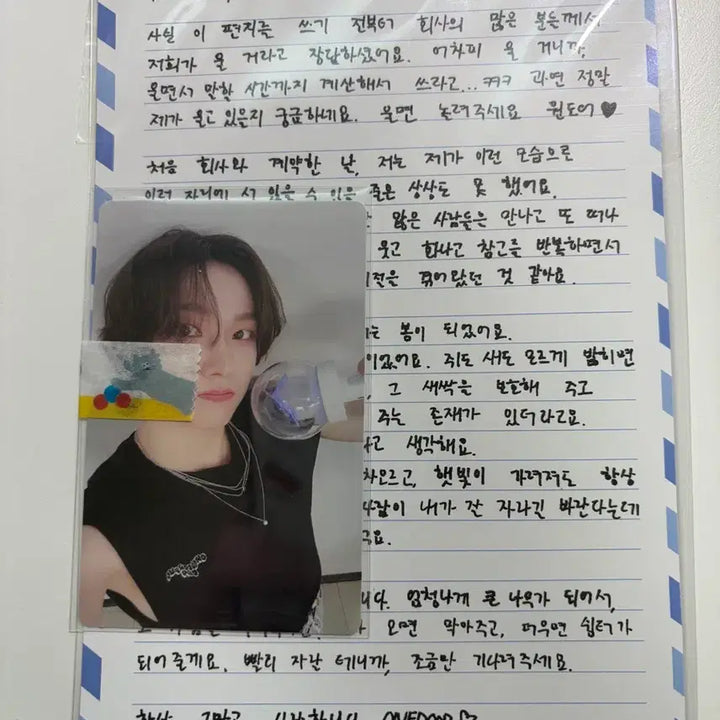 사실 이 편지를 쓰기 전부터 회사의 많은 분들께서
저희가 울 거라고 장담하셨어요. 어차피 울 거니까,
울면서 말할 시간까지 계산해서 쓰라고...ㅋㅋㅋ 과연 정말
제가 울고 있을지 궁금하네요. 울면 놀려주세요 원도어♥
처음 회사와 계약한 날, 저는 제가 이런 모습으로
이런 자리에 서 있을 수 있을 줄은 상상도 못 했어요.
많은 사람들을 만나고 또 떠나
웃고 화나고 참고를 반복하면서
겪어왔던 것 같아요.
봄이 되었어요.
쥐도 새도 모르게 밟히면
그 새싹을 보호해 주고
주는 존재가 있더라고요.
생각해요.
차오르고, 햇빛이 가려져도 항상
사람이 내가 잘 자라길 바란다는데
엄청나게 큰 나무가 되어서,
오면 막아주고, 더우면 쉼터가
되어 줄게요. 빨리 자랄 테니까, 조금만 기다려주세요.
항상 고맙고 사랑합니다 ONEDOOR♡